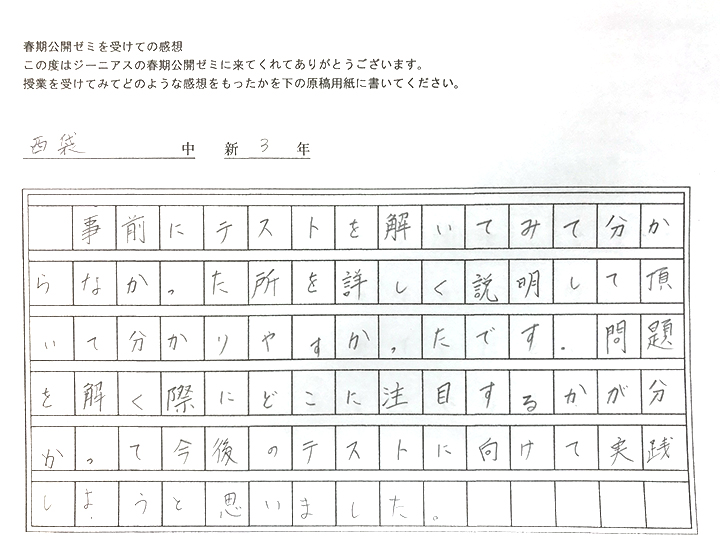 春期公開ゼミを受けての感想
この度はジーニアスの春期公開ゼミに来てくれてありがとうございます。
授業を受けてみてどのような感想をもったかを下の原稿用紙に書いてください。
西袋 中 新 3 年
事前にテストを解いてみて分か
らなかった所を詳しく説明して頂
いて分かりやすかったです。問題
を解く際にどこに注目するかが分
かって今後のテストに向けて実践
しようと思いました。